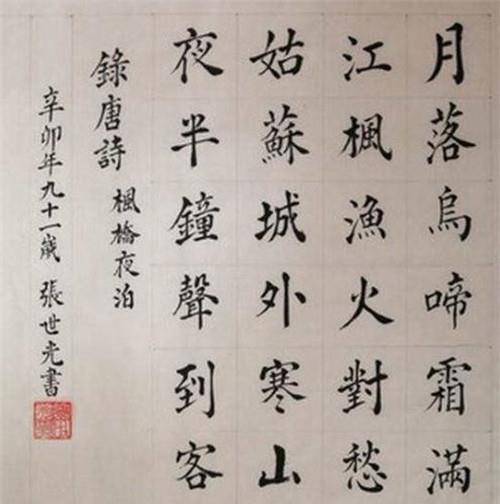 月落烏啼霜滿
江楓漁火對愁
姑蘇城外寒山
夜半鐘聲到客
錄唐詩
楓橋夜泊
辛卯年九十一歲 張世光書